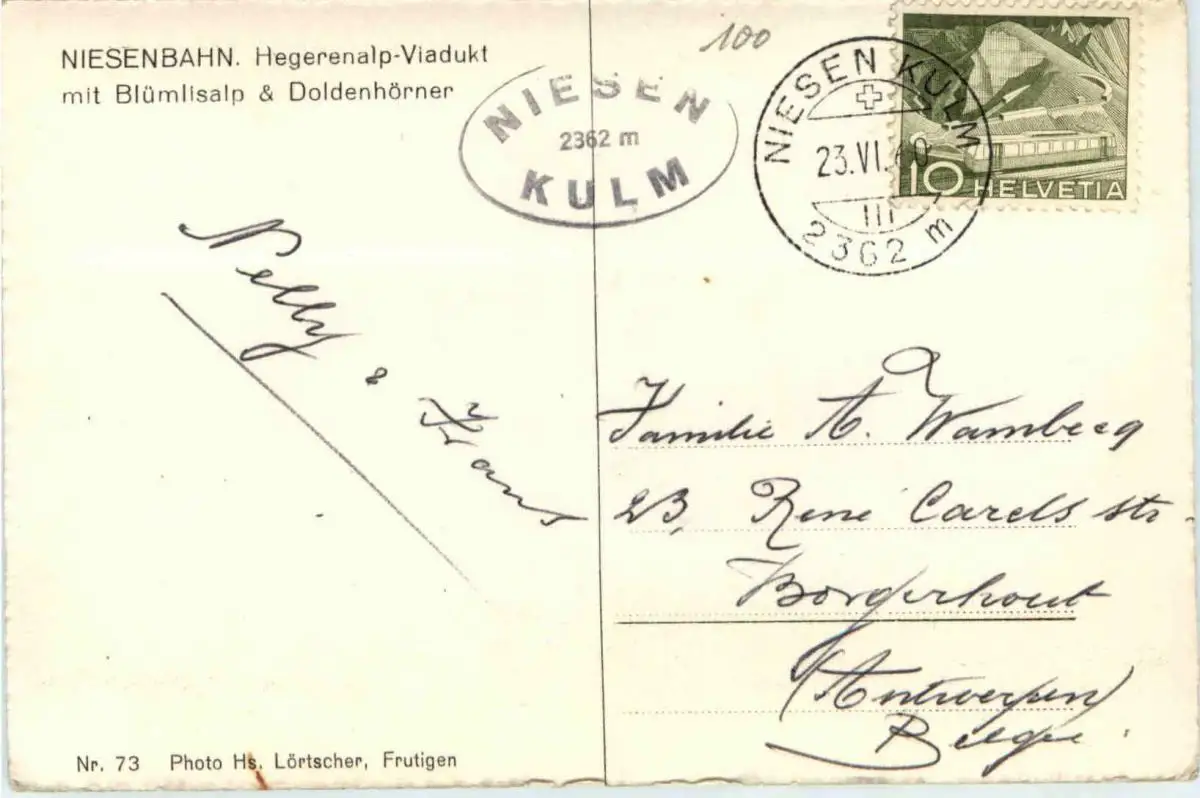 NIESENBAHN. Hegerenalp-Viadukt
mit Blümlisalp & Doldenhörner
100
NIESEN
2362 m
KULM
NIESEN KULM
23.VI.60
III
2362 m
10 HELVETIA
Nelly & Hans
Familie A. Wamberg
23, René Carels str.
Borgerhout
(Antwerpen)
Belgie.
Nr. 73 Photo Hs. Lörtscher, Frutigen